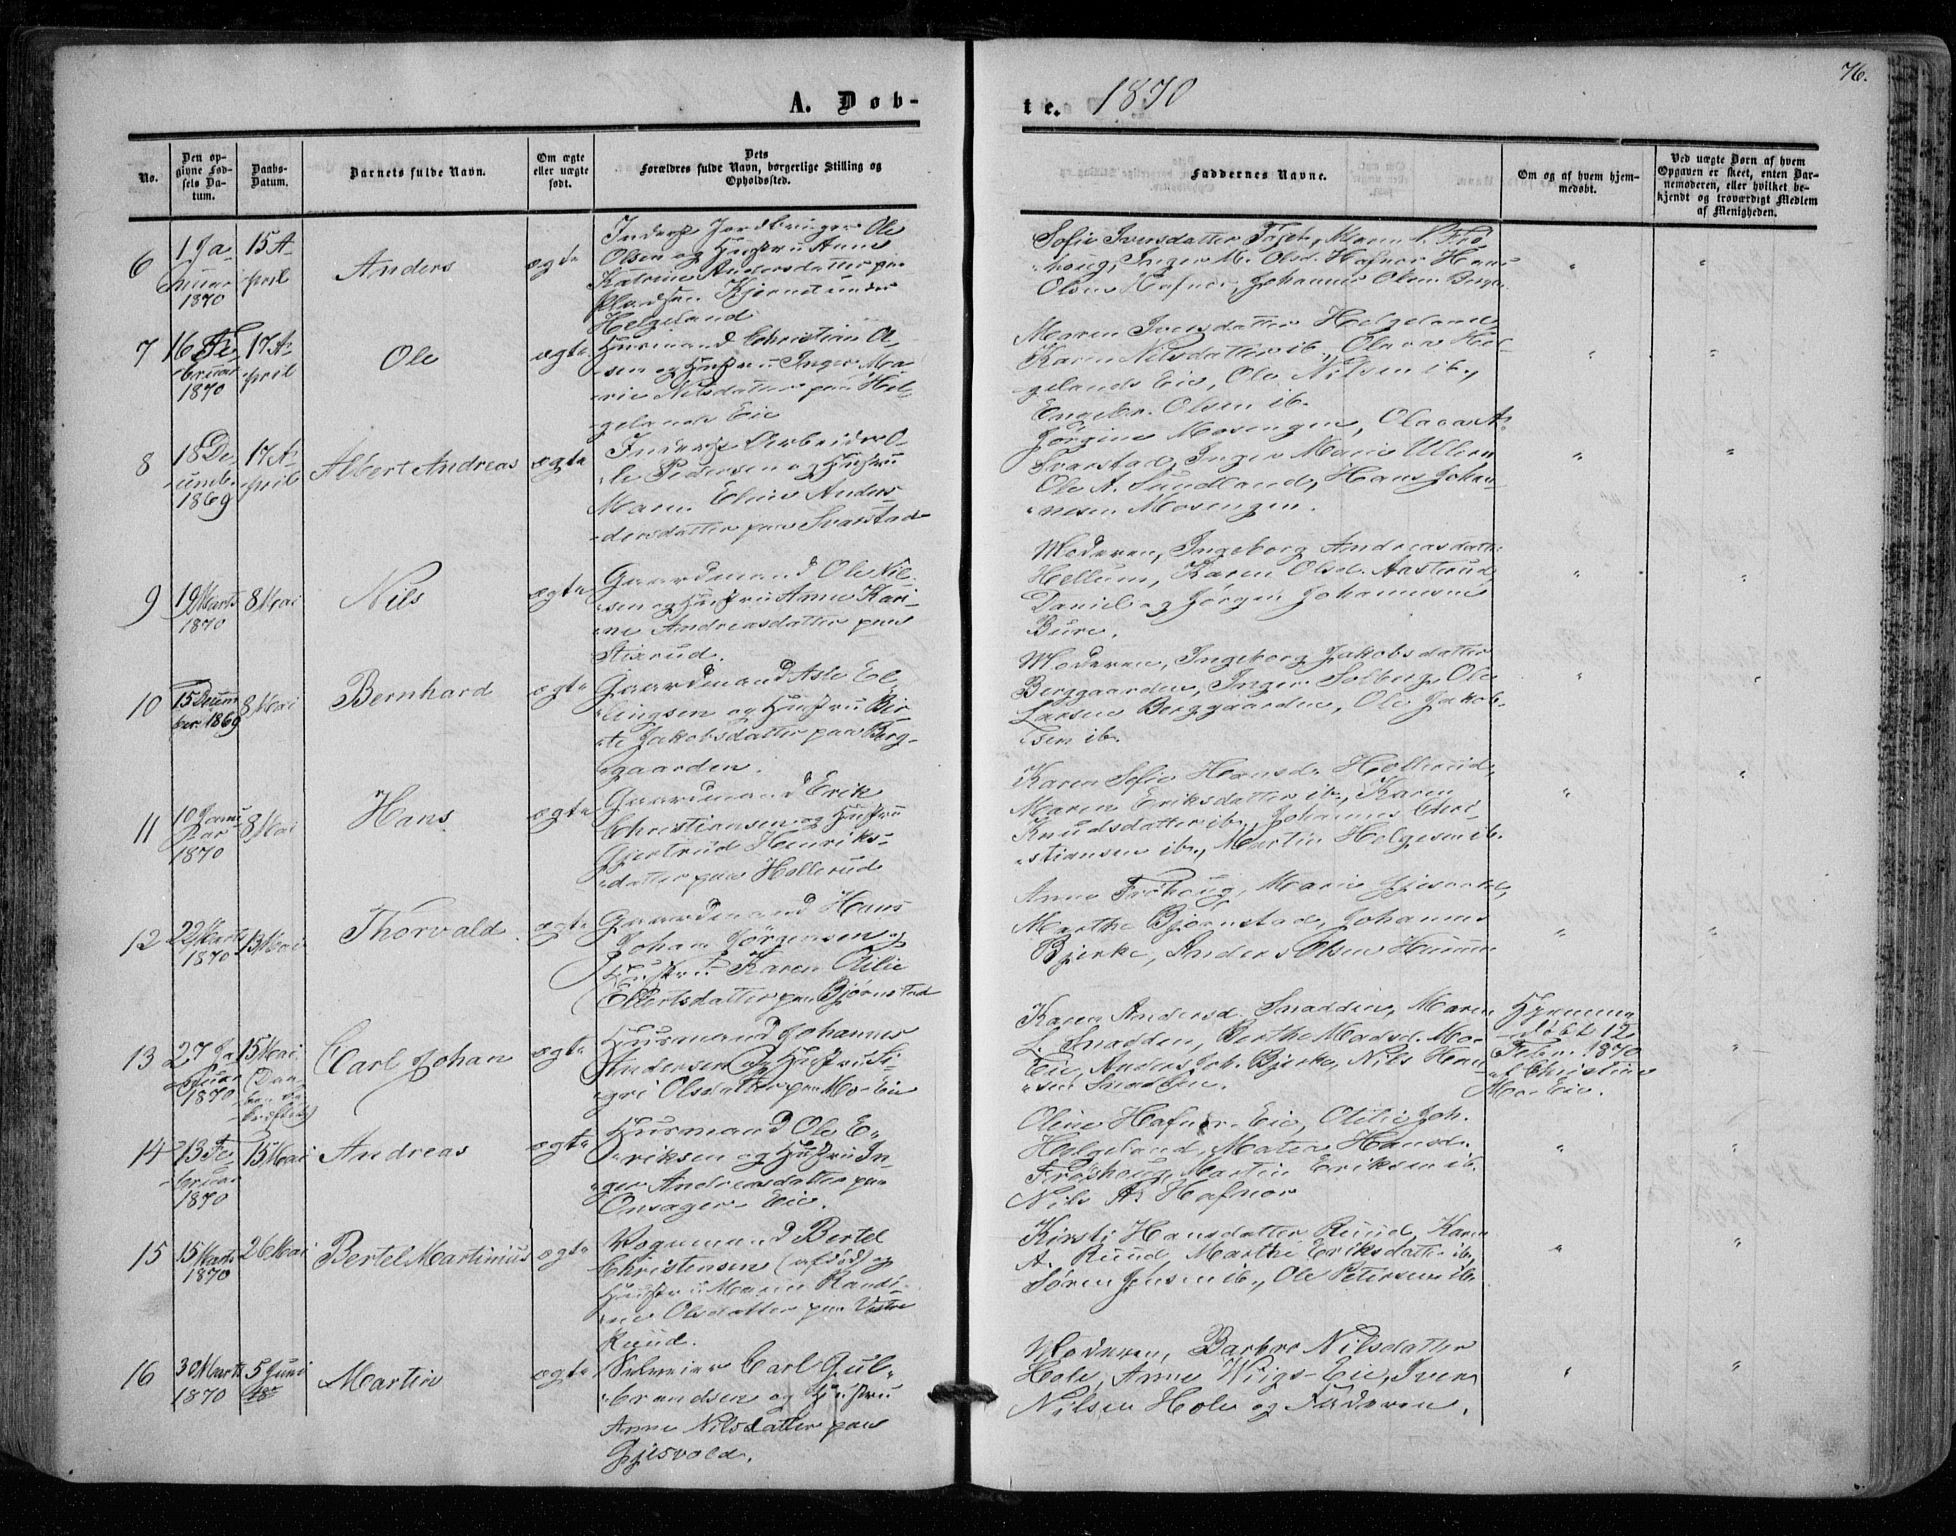 76.
A. Døb-
te. 1870
No.
Den op-
givne Fød-
sels Da-
tum.
Daabs-
Datum.
Barnets fulde Navn.
Om ægte
eller uægte
født.
Dets
Forældres fulde Navn, borgerlige Stilling og
Opholdssted.
Faddernes Navne.
Om og af hvem hjem-
medøbt.
Ved uægte Børn af hvem
Opgaven er skeet, enten Bar-
nemoderen, eller hvilket be-
kjendt og troværdigt Medlem
af Menigheden.
6
1 Ja-
nuar
1870
15 A-
pril
Anders
ægte
Inderst Jordbruger Ole
Olsen og Hustru Anne
Katrine Andersdatter paa
Pladsen under
Helgeland
Sofie Iversdatter Maren
Inger M. Olsd. Hafnor Hans
Olsen Hafnor, Johannes Olsen
7
16 Fe-
bruar
1870
17 A-
pril
Ole
ægte
Husmand Christian O-
sen og Hustru Inger Ma-
rie Nilsdatter paa Hel-
gelands Eie
Maren Iversdatter Helgeland,
Karen Nilsdatter ib., Olava Hel-
gelands Eie, Ole Nilsen ib.,
Engebr. Olsen ib.
8
18 De-
cemb.
1869
17 A-
pril
Albert Andreas
ægte
Inderst Arbeider O-
le Pedersen og Hustru
Maren Eline Anders-
dersdatter paa Svarstad
Jørgine Mosengen, Olava A.
Svarstad, Inger Marie Ullern
Ole A. Sundland, Hans Johan-
nesen Mosengen.
9
19 Marts
1870
8 Mai
Nils
ægte
Gaardmand Ole Nil-
sen og Hustru Anne Kari-
ne Andreasdatter paa
Stixrud.
Moderen, Ingeborg Andreasdatter
Hellum, Karen Olsd. Aasterud,
Daniel og Jørgen Johannesen
Bure.
10
15 Decem-
ber 1869
8 Mai
Bernhard
ægte
Gaardmand Asle El-
lingsen og Hustru Bir-
te Jakobsdatter paa Berg-
gaarden.
Moderen, Ingeborg Jakobsdatter
Berggaarden, Inger Solberg, Ole
Larsen Berggaarden, Ole Jakob-
sen ib.
11
10 Janu-
ar
1870
8 Mai
Hans
ægte
Gaardmand Erik
Christiansen og Hustru
Gjertrud Henriks-
datter paa Hollerud
Karen Sofie Hansd. Hollerud,
Maren Eriksdatter ib., Karen
Knudsdatter ib., Johannes Chri-
stiansen ib., Martin Helgesen ib.
12
22 Marts
1870
13 Mai
Thorvald
ægte
Gaardmand Hans
Johan Jørgensen og
Hustru Karen Otilie
Ellertsdatter paa Bjørnstad
Anne Frøhoug, Marie Gjesvold,
Marthe Bjørnstad, Johannes
Bjerke, Anders Olsen
13
27 Ja-
nuar
1870
15 Mai
Carl Johan
ægte
Husmand Johannes
Andersen og Hustru Si-
gri Olsdatter paa Mo Eie
Karen Andersd. Snadden, Maren
L. Snadden, Berthe Madsd. Mo-
Eie, Anders Joh. Bjerke, Nils Han-
sen Snadden.
Hjemme-
døbt 12
Febr. 1870
af Christian
Mo Eie.
14
13 Fe-
bruar
1870
15 Mai
Andreas
ægte
Husmand Ole E-
riksen og Hustru In-
ger Andreasdatter paa
Onsager Eie.
Oline Hafnor Eie, Otilie Joh.
Helgeland, Matea Hansd.
Frøshoug, Martin Eriksen ib.
Nils A. Hafnor
15
15 Marts
1870
26 Mai
Bertel Martinius
ægte
Vognmand Bertel
Christensen (afdød) og
Hustru Maren Randi-
ne Olsdatter paa Vestre
Ruud.
Kirsti Hansdatter Ruud, Karen
A. Ruud, Marthe Eriksdatter ib.,
Søren Jensen ib., Ole Petersen ib.
16
3 Marts
1870
5 Juni
Martin
ægte
Selveier Carl Gul-
brandsen og Hustru
Anne Nilsdatter paa
Gjesvold.
Moderen, Barbro Nilsdatter
Hole, Anne Wiigs-Eie, Iver
Nilsen Hole og Faderen.